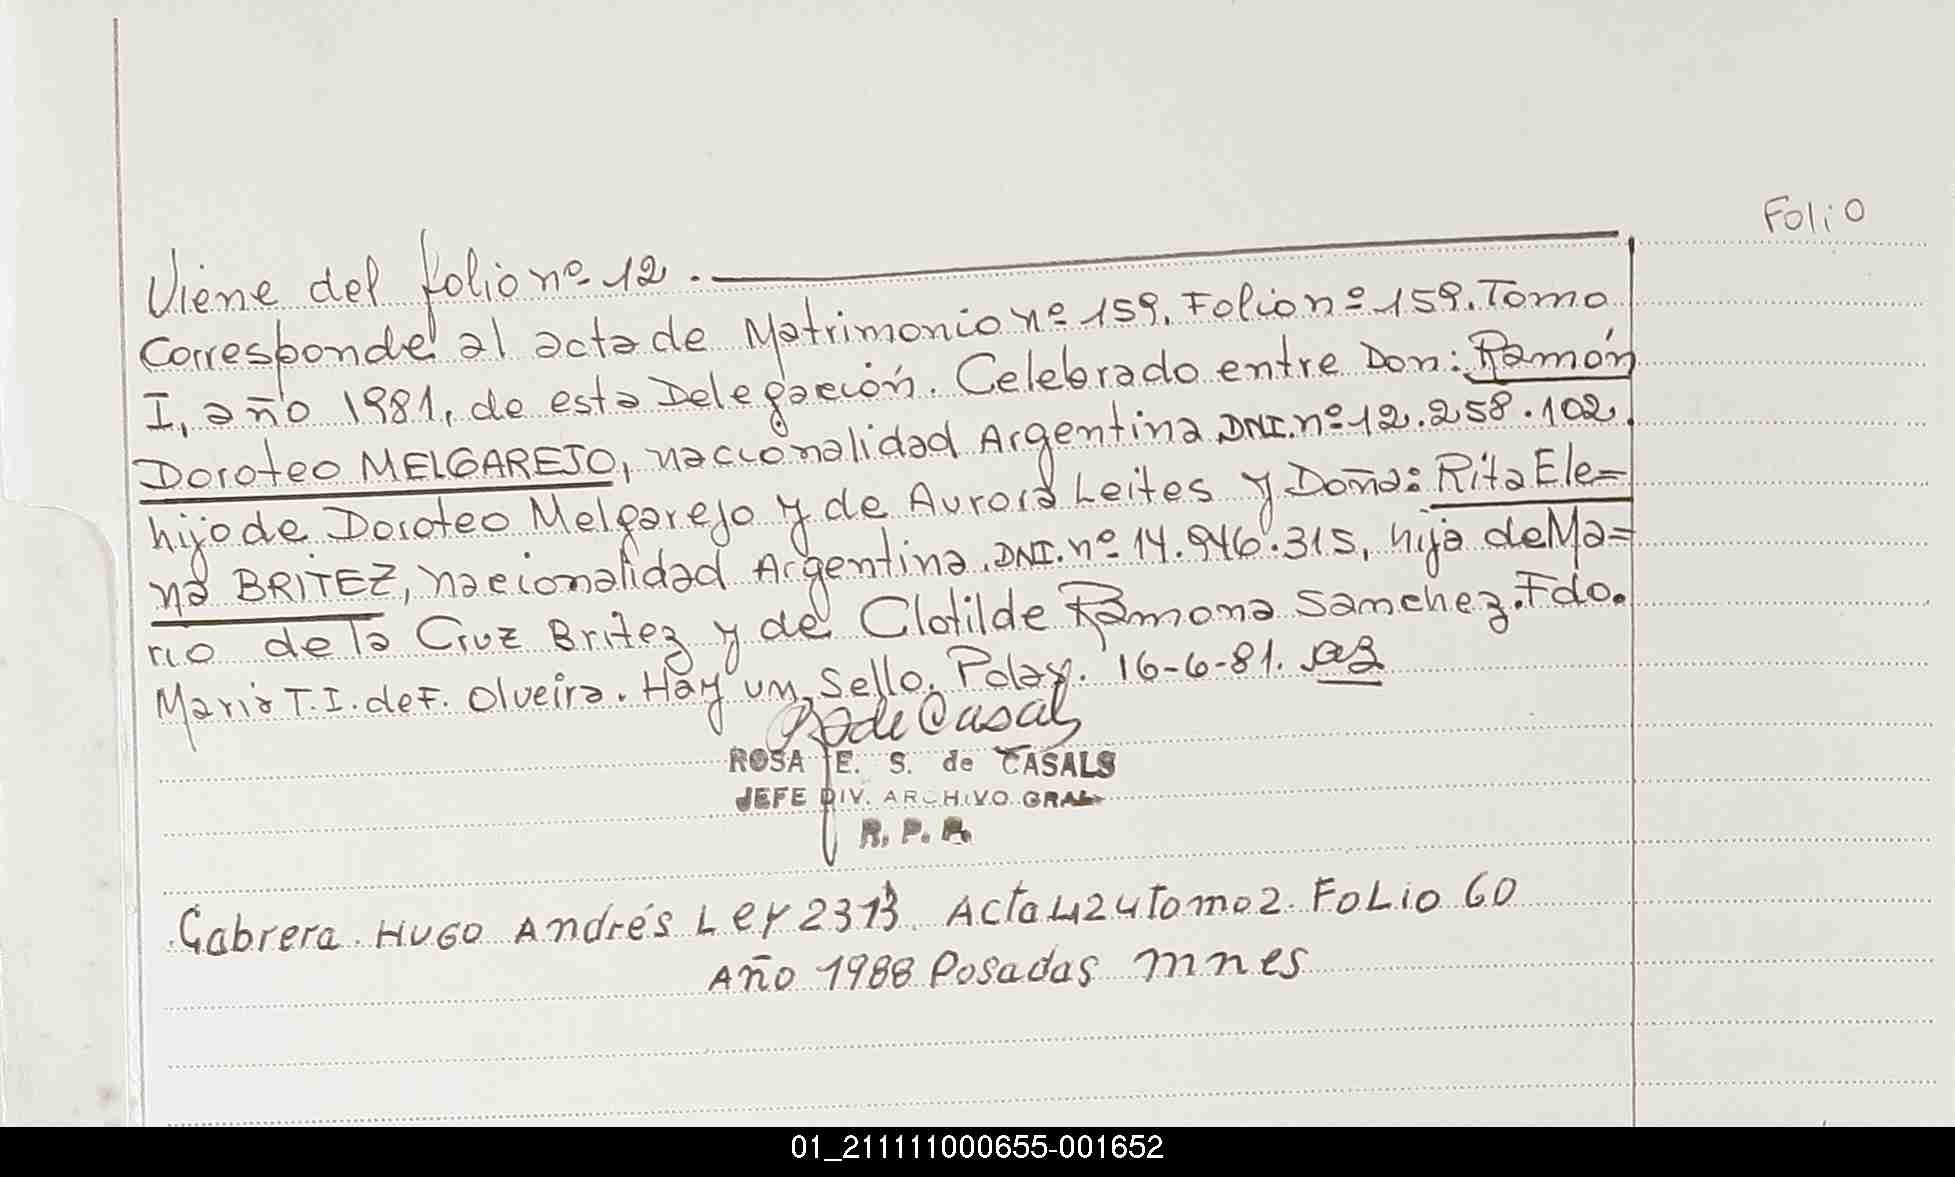 Folio
Viene del folio nº 12.
Corresponde al acta de Matrimonio nº 159. Folio nº 159. Tomo
I, año 1981, de esta Delegación. Celebrado entre Don: Ramón
Doroteo MELGAREJO, nacionalidad Argentina DNI. nº 12.258.102.
hijo de Doroteo Melgarejo y de Aurora Leites y Doña: Rita Ele=
na BRITEZ, nacionalidad Argentina. DNI. nº 14.946.315, hija de Ma=
rio de la Cruz Britez y de Clotilde Ramona Sanchez. Fdo.
Maria T. I. de F. Olveira. Hay un Sello. Pdas. 16-6-81.
R de Casals
ROSA E. S. de CASALS
JEFE DIV. ARCHIVO GRAL
R. P. P.
Cabrera Hugo Andrés Ley 2373 Acta 424 Tomo 2. Folio 60
Año 1988 Posadas mnes
01_211111000655-001652